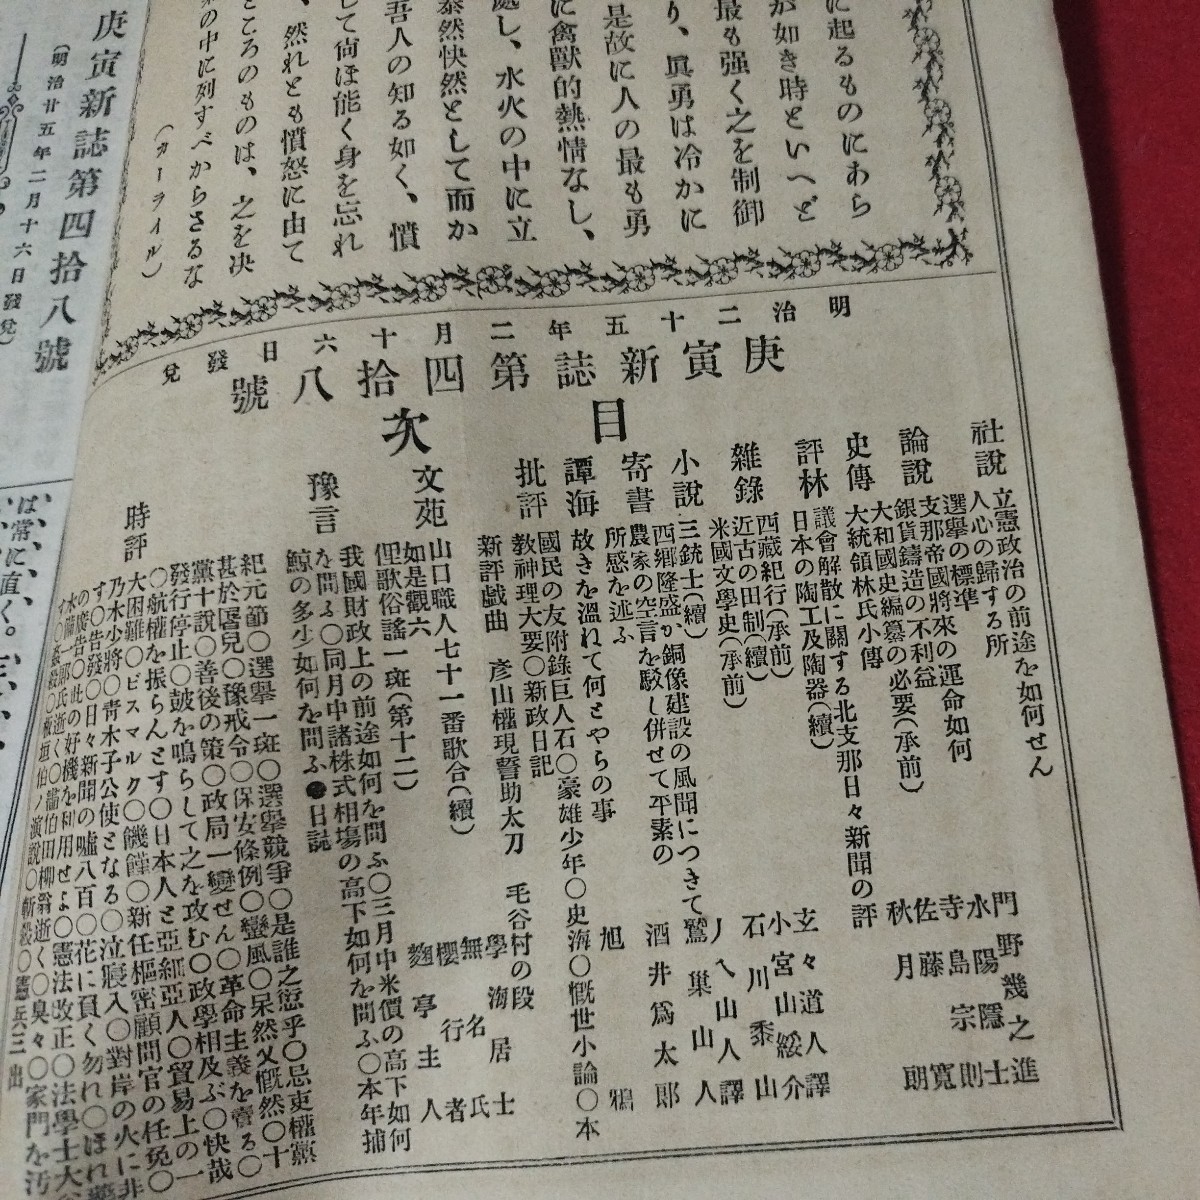 に起るものにあら
が如き時といへど
最も强く之を制御
り、眞勇は冷かに
是故に人の最も勇
に禽獸的熱情なし、
處し、水火の中に立
泰然快然として而か
吾人の知る如く、憤
して尙ほ能く身を忘れ
、然れども憤怒に由て
ところのものは、之を决
の中に列すべからさるな
(カーライル)
庚寅新誌第四拾八號
(明治廿五年二月十六日發兌)
明治二十五年二月十六日發兌
庚寅新誌第四拾八號
目次
社說
立憲政治の前途を如何せん
人心の歸する所
選擧の標準 門野幾之進
論說
支那帝國將來の運命如何 水陽隱士
銀貨鑄造の不利益 寺島宗則
大和國史編纂の必要(承前) 佐藤寬
史傳
大統領林氏小傳 秋月朗
評林
議會解散に關する北支那日々新聞の評
日本の陶工及陶器(續)
雜錄
西藏紀行(承前) 玄々道人譯
近古の田制(續) 小宮山綏介
米國文學史(承前) 石川黍山
小說
三銃士(續) 丿乀山人譯
西鄕隆盛か銅像建設の風聞につきて 鷲巢山人
寄書
農家の空言を駁し併せて平素の
所感を述ふ 酒井爲太郎
譚海
故きを溫れて何とやらの事 旭鴉
批評
國民の友附錄巨人石〇豪雄少年〇史海〇慨世小論〇本
敎神理大要〇新政日記
新評戲曲 彥山權現誓助太刀 毛谷村の段 學海居士
文苑
山口職人七十一番歌合(續) 無名氏
如是觀六 櫻行者
俚歌俗謠一斑(第十二) 麹亭主人
豫言
我國財政上の前途如何を問ふ〇三月中米價の高下如何
を問ふ〇同月中諸株式相塲の高下如何を問ふ〇本年捕
鯨の多少如何を問ふ●日誌
時評
紀元節〇選擧一斑〇選擧競爭〇是誰之愆乎〇忌吏權黨
甚於屠兒〇豫戒令〇保安條例〇蠻風〇呆然又慨然〇十
黨十說〇善後の策〇政局一變せん〇革命主義を賣る〇
發行停止〇皷を鳴らして之を攻む〇政學相及ぶ〇快哉
〇航權を振らんとす〇日本人と亞細亞人〇貿易上の一
大困難〇ビスマルク〇饑饉〇新任樞密顧問官の任免〇
乃木少將〇靑木子公使となる〇泣寢入〇對岸の火に非
す〇告發〇日々新聞の噓八百〇花に負く勿れ〇ほれ藥
の廣告〇此の好機を利用せよ〇憲法改正〇法學士大
〇板垣伯ノ演說〇斬殺〇憲兵三出
は常に直く。